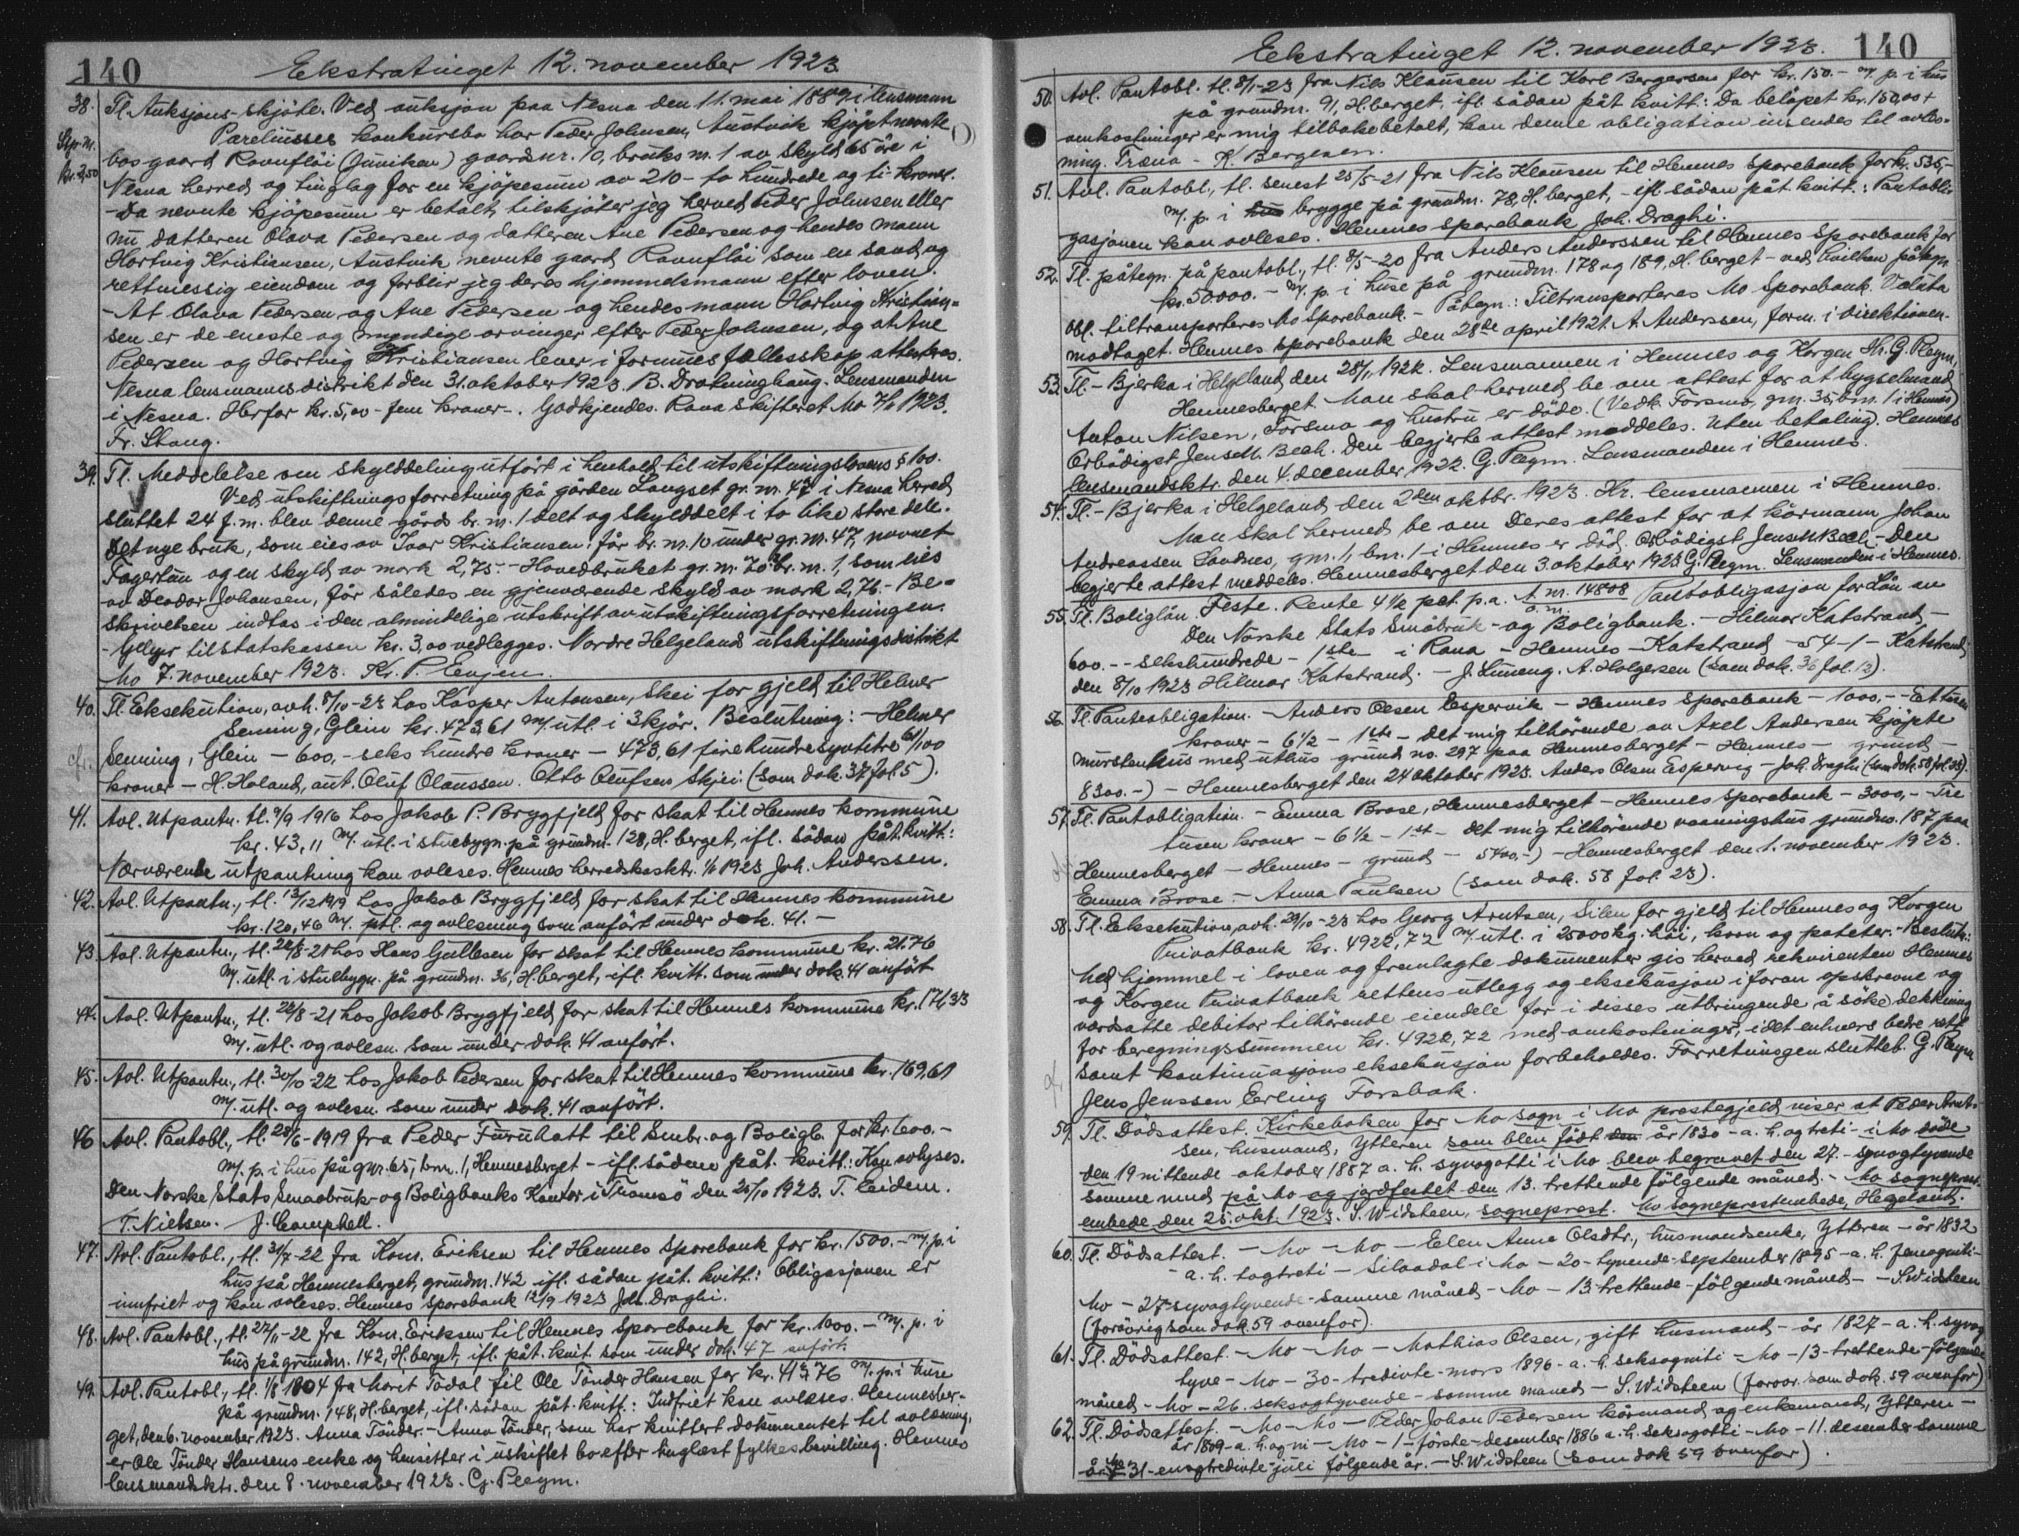 140
Ekstratinget 12. november 1923
38. Tl. Auksjons-skjöte. Ved auksjon paa Nesna den 11. mai 1889 i lensmann
Stp. m. Pareliusses konkursbo har Peder Johnsen, Austvik kjöpt nevnte
Kr. 2,50 bos gaard Ravnflåi (Janikan) gaards nr. 10, bruks nr. 1 av skyld 65 öre i
Nesna herred og tinglag for en kjöpesum av 210 - to hundrede og ti - kroner.
- Da nevnte kjöpesum er betalt, tilskjöter jeg herved Peder Johnsen eller
nu datteren Olava Pedersen og datteren Ane Pedersen og hendes mann
Hartvig Kristiansen, Austvik nevnte gaard Ravnflåi som en sand og
rettmessig eiendom og forblir jeg deres hjemmelsmann efter loven.
- At Olava Pedersen og Ane Pedersen og hendes mann Hartvig Kristian-
sen er de eneste og myndige arvinger efter Peder Johnsen, og at Ane
Pedersen og Hartvig Kristiansen lever i formues fællesskap attesteres.
Nesna lensmannsdistrikt den 31. oktober 1923. B. Drotninghaug. Lensmanden
i Nesna. Herfor kr. 5,00 - fem kroner -. Godkjendes. Rana skifteret Mo 7/11 1923.
Fr. Stang.
39. Tl. Meddelelse om skylddeling utfört i henhold til utskiftningslovens § 100.
Ved utskiftningsforretning på gården Langset gr. nr. 47 i Nesna herred
sluttet 24 f. m. blev denne gårds br. nr. 1 delt og skylddelt i to like store dele.
Det nye bruk, som eies av Ivar Kristiansen, får br. nr. 10 under gr. nr. 47, navnet
Fagertun og en skyld av mark 2,75. - Hovedbruket gr. nr. 47 br. nr. 1, som eies
av Deodor Johansen, får således en gjenværende skyld av mark 2,76. - Be-
skrivelsen indtas i den almindelige utskrift av utskiftningsforretningen.
- Gebyr til statskassen kr. 3,00 vedlegges. Nordre Helgeland utskiftningsdistrikt
Mo 7. november 1923. Kr. P. Engjen.
40. Tl. Eksekution, avh. 8/10-23 hos Kasper Antonsen, Skei for gjeld til Helmer
Sening, Glein kr. 473,61 m/ utl. i 3 kjör. Beslutning: - Helmer
Sening, Glein - 600,- seks hundre kroner - 473,61 firehundresyvtitre 61/100
kroner - H. Holand, aut. Oluf Olaussen. Otto Olufsen Skjei (som dok. 37 fol. 5).
41. Avl. Utpantn. tl. 9/9 1916 hos Jakob P. Brygfjeld for skat til Hemnes kommune
kr. 43,11 m/ utl. i stuebygn. på grundnr. 128, H.berget, ifl. sådan påt. kvitt.:
Nærværende utpantning kan avleses. Hemnes herredskasktr. 1/11 1923 Joh. Anderssen.
42. Avl. Utpantn., tl. 13/12 1919 hos Jakob Brygfjeld for skat til Hemnes kommune
kr. 120,46 m/ utl. og avlesning som anfört under dok. 41. -
43. Avl. Utpantn., tl. 22/8-21 hos Hans Gullesen for skat til Hemnes kommune kr. 21.76
m/ utl. i stuebygn. på grundnr. 36, H.berget, ifl. kvitt. som under dok. 41 anfört
44. Avl. Utpantn., tl. 22/8-21 hos Jakob Brygfjeld for skat til Hemnes kommune kr. 171,33
m/ utl. og avlesn. som under dok. 41 anfört.
45. Avl. Utpantn., tl. 30/10-22 hos Jakob Pedersen for skat til Hemnes kommune kr. 169,61
m/ utl. og avlesn. som under dok. 41 anfört.
46. Avl. Pantobl., tl. 28/6-1919 fra Peder Furuhatt til Smbr. og Boligb. for kr. 600.-
m/ p. i hus på gnr. 65, bnr. 1, Hemnesberget - ifl. sådan påt. kvitt.: Kan avlyses.
Den Norske Stats Smaabruk- og Boligbanks Kontor i Tromsö den 25/10 1923. T. Eidem.
T. Nielsen. J. Camphell.
47. Avl. Pantobl., tl. 31/7-22 fra Konr. Eriksen til Hemnes Sparebank for kr. 1500.- m/ p. i
hus på Hemnesberget, grundnr. 142 ifl. sådan påt. kvitt.: Obligasjonen er
innfriet og kan avleses. Hemnes Sparebank 12/9 1923 Joh. Draghi.
48. Avl. Pantobl., tl. 27/11-22 fra Konr. Eriksen til Hemnes Sparebank for kr. 1000.- m/ p. i
hus på grundnr. 142, H.berget, ifl. påt. kvit. som under dok. 47 anfört.
49. Avl. Pantobl., tl. 1/8 1904 fra Marit Tödal til Ole Tönder Hansen for kr. 413,76 m/ p. i huse
på grundnr. 148, H.berget, ifl. sådan påt. kvitt.: Indfriet kan avleses. Hemnesber-
get, den 6. november 1923. Anna Tönder. - Anna Tönder, som har kvittert dokumentet til avlesning,
er Ole Tönder Hansens enke og hensitter i uskiftet bo efter tinglest fylkesbevilling. Hemnes
lensmandsktr. den 8. november 1923. G. Plegm.
140
Ekstratinget 12. november 1923.
50. Avl. Pantobl. tl. 8/1-23 fra Nils Klausen til Karl Bergersen for kr. 150.- m/ p. i hus
på grundnr. 91, H.berget, ifl. sådan påt. kvitt.: Da belöpet kr. 150,00 +
omkostninger er mig tilbakebetalt, kan denne obligation insendes til avles-
ning. Træna - K. Bergesen.
51. Avl. Pantobl., tl. senest 25/5-21 fra Nils Klausen til Hemnes Sparebank for kr. 535,-
m/ p. i brygge på grundnr. 78, H.berget, - ifl. sådan påt. kvitt.: Pantobli-
gasjonen kan avleses. Hemnes Sparebank Joh. Draghi.
52. Tl. påtegn. på pantobl., tl. 8/5-20 fra Anders Anderssen til Hemnes Sparebank for
kr. 50.000.- m/ p. i huse på grundnr. 178 og 189, H.berget - ved hvilken påtegn.
obl. tiltransporteres Mo Sparebank. - Påtegn.: Tiltransporteres Mo Sparebank. Valuta
modtaget. Hemnes Sparebank den 28de april 1921. A. Anderssen, form. i direktionen.
53. Tl. - Bjerka i Helgeland den 28/11 1922. Lensmannen i Hemnes og Korgen Hr. G. Plegm,
Hemnesberget. Man skal herved be om attest for at bygselmand
Anton Nilsen, Forsmo og hustru er döde. (Vedk. Forsmo, gnr. 35, bnr. 1 i Hemnes)
Erbödigst Jens M. Bech. Den begjerte attest meddeles. Uten betaling. Hemnes
lensmandsktr. den 4. december 1922. G. Plegm. Lensmanden i Hemnes.
54. Tl. - Bjerka i Helgeland den 2den oktbr. 1923. Hr. lensmannen i Hemnes.
Man skal herved be om Deres attest for at kårmann Johan
Andreassen Sandnes, gnr. 1, bnr. 1 - i Hemnes er död. Erbödigst Jens M. Bech. - Den
begjerte attest meddeles. Hemnesberget den 3. oktober 1923 G. Plegm. Lensmanden i Hemnes.
55. Tl. Boliglån. Feste. Rente 4 1/2 pct. p.a. L. nr. 14808 Pantobligasjon for Lån av
Den Norske Stats Småbruk- og Boligbank. - Hilmar Katstrand, -
600.- - sekshundrede - 1ste - i Rana - Hemnes - Katstrand - 54 - 1 - Katstrand
den 8/10 1923 Hilmar Katstrand. - J. Luneng. A. Holgersen (som dok. 36 fol. 13).
56. Tl. Panteobligation. - Anders Olsen Espervik - Hemnes Sparebank - 1000,- - Ettusen
kroner - 6 1/2 - 1ste - det mig tilhörende av Axel Andersen kjöpte
murstenhus med uthus - grund no. 297 paa Hemnesberget - Hemnes - grund -
8300.-) - Hemnesberget den 24 oktober 1923. Anders Olsen Espervig - Joh. Draghi (som dok. 58 fol. 23).
57. Tl. Pantobligation. - Emma Brose, Hemnesberget - Hemnes Sparebank - 3000,- - Tre
tusen kroner - 6 1/2 - 1ste - det mig tilhörende vaaningshus grundno. 187 paa
Hemnesberget - Hemnes - grund - 5400,-) - Hemnesberget den 1. november 1923.
Emma Brose. - Anna Paulsen (som dok. 58 fol. 23).
58. Tl. Eksekution, avh. 29/10-23 hos Georg Arntsen, Silen for gjeld til Hemnes og Korgen
Privatbank kr. 4922,72 m/ utl. i 25000 kg. höi, korn og poteter. - Beslutn.:
Med hjemmel i loven og fremlagte dokumenter gis herved rekvirenten Hemnes
og Korgen Privatbank rettens utlegg og eksekusjon i foran opskrevne og
verdsatte debitor tilhörende eiendele for i disses utbringende å söke dekkning
for beregningssummen kr. 4922,72 med omkostninger, idet enhvers bedre rett
samt kontinuasjons eksekusjon forbeholdes. Forretningen sluttet. G. Plegm
Jens Jenssen Erling Forsbak.
59. Tl. Dödsattest. Kirkeboken for Mo sogn i Mo prestegjeld viser at Peder Arnt-
sen, husmand, Ytteren som blev födt år 1830 - a. h. og treti - i Mo döde
den 19 nittende oktober 1887 a. h. syvogotti i Mo blev begravet den 27. - syvogtyvende
samme mnd på Mo og jordfestet den 13. trettende fölgende måned. - Mo sogneprest-
embede den 25. okt. 1923. S. Widsteen, sogneprest. Mo sogneprestembede, Hegeland.
60. Tl. Dödsattest. - Mo - Mo. - Elen Anna Olsdtr., husmandsenke, Ytteren - år 1832
- a. h. togtreti - Silaadal i Mo - 20 - tyvende - september 1895 - a. h. femogniti -
Mo - 27 - syvogtyvende - samme måned - Mo - 13 - trettende - fölgende måned - - S. Widsteen
(forövrig som dok. 59 ovenfor).
61. Tl. Dödsattest. - Mo - Mo - Mathias Olsen, gift husmand - år 1827 - a. h. syvog
tyve - Mo - 30 - tredivte - mars 1896 - a. h. seksogniti - Mo - 13 - trettende - fölgende
måned - Mo - 26. seksogtyvende - samme måned - S. Widsteen (forøvr. som dok. 59 ovenfor)
62. Tl. Dödsattest. - Mo - Mo - Peder Johan Pedersen kårmand og enkemand, Ytteren -
år 1809 - a. h. og ni - Mo - 1 - förste - desember 1886 a. h. seksogotti - Mo - 11. desember samme
år - Mo 31 - enogtredivte - juli fölgende år. - S. Widsteen (som dok 59 ovenfor)